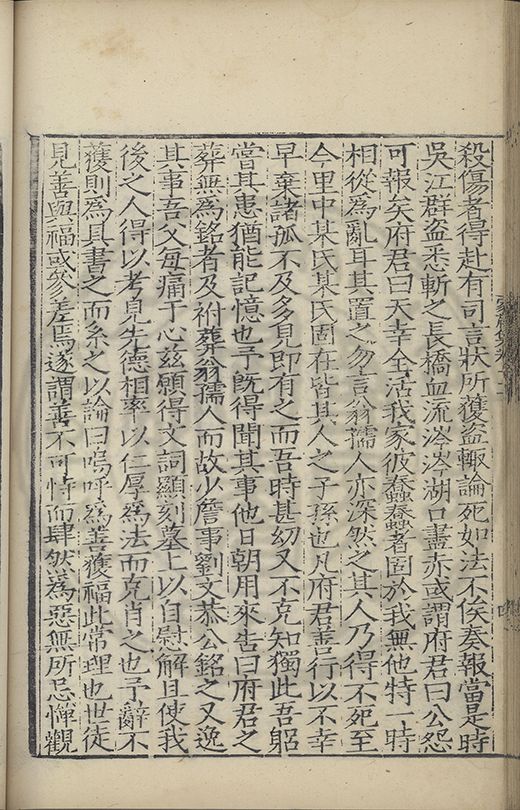 殺傷者得赴有司言狀所獲盜輙論死如法不俟奏報當是時
吳江群盜悉斬之長橋血流涔涔湖口盡赤或謂府君曰公怨
可報矣府君曰天幸全活我家彼蠢蠢者固於我無他特一時
相從爲亂耳其置之勿言翁孺人亦深然之其人乃得不死至
今里中某氏某氏固在皆其人之子孫也凡府君善行以不幸
早棄諸孤不及多見即有之而吾時甚幼又不克知獨此吾躬
嘗其患猶能記憶也予旣得聞其事他日朝用來告曰府君之
葬無爲銘者及祔葬翁孺人而故少詹事劉文恭公銘之又逸
其事吾父每痛于心兹願得文詞顯刻墓上以自慰解且使我
後之人得以考見先德相率以仁厚爲法而克肖之也予辭不
獲則爲具書之而系之以論曰嗚呼爲善獲福此常理也世徒
見善與福或參差焉遂謂善不可恃而肆然爲惡無所忌憚觀